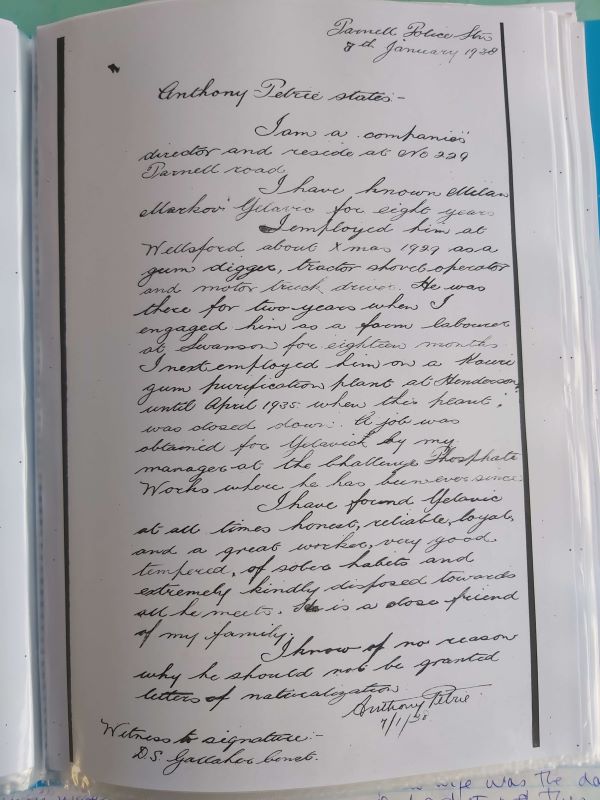 Parnell Police Stn
7th January 1938
Anthony Petrie states:-
I am a companies
director and reside at No 229
Parnell road.
I have known Milan
Markov Yelavic for eight years
I employed him at
Wellsford about Xmas 1929 as a
gum digger, tractor shovel operator
and motor truck driver. He was
there for two years when I
engaged him as a farm labourer
at Swanson for eighteen months.
I next employed him on a Kauri
gum purification plant at Henderson
until April 1935 when this plant
was closed down. A job was
obtained for Yelavich by my
manager at the Challenge Phosphate
Works where he has been ever since
I have found Yelavic
at all times honest, reliable, loyal,
and a great worker, very good
tempered, of sober habits and
extremely kindly disposed towards
all he meets. He is a close friend
of my family.
I know of no reason
why he should not be granted
letters of naturalization
Anthony Petrie.
7/1/38
Witness to signature:-
D.S. Gallaher Const.
wife was the da